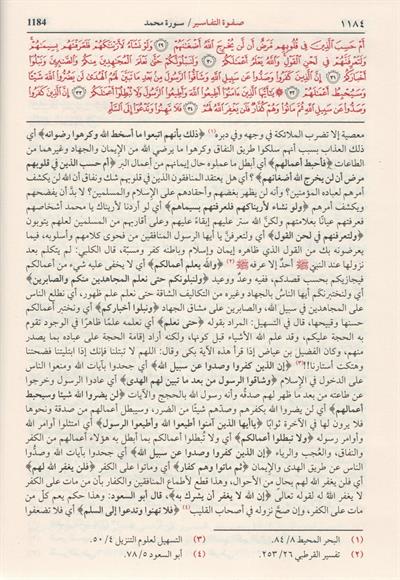 ١١٨٤ صفوة التفاسير / سورة محمد 1184
أَمْ حَسِبَ الَّذِينَ فِي قُلُوبِهِم مَّرَضٌ أَن لَّن يُخْرِجَ اللَّهُ أَضْغَانَهُمْ ﴿٢٩﴾ وَلَوْ نَشَاءُ لَأَرَيْنَاكَهُمْ فَلَعَرَفْتَهُم بِسِيمَاهُمْ
وَلَتَعْرِفَنَّهُمْ فِي لَحْنِ الْقَوْلِ وَاللَّهُ يَعْلَمُ أَعْمَالَكُمْ ﴿٣٠﴾ وَلَنَبْلُوَنَّكُمْ حَتَّى نَعْلَمَ الْمُجَاهِدِينَ مِنكُمْ وَالصَّابِرِينَ وَنَبْلُوَ
أَخْبَارَكُمْ ﴿٣١﴾ إِنَّ الَّذِينَ كَفَرُوا وَصَدُّوا عَن سَبِيلِ اللَّهِ وَشَاقُّوا الرَّسُولَ مِن بَعْدِ مَا تَبَيَّنَ لَهُمُ الْهُدَى لَن يَضُرُّوا اللَّهَ شَيْئًا
وَسَيُحْبِطُ أَعْمَالَهُمْ ﴿٣٢﴾ يَا أَيُّهَا الَّذِينَ آمَنُوا أَطِيعُوا اللَّهَ وَأَطِيعُوا الرَّسُولَ وَلَا تُبْطِلُوا أَعْمَالَكُمْ ﴿٣٣﴾ إِنَّ الَّذِينَ كَفَرُوا
وَصَدُّوا عَن سَبِيلِ اللَّهِ ثُمَّ مَاتُوا وَهُمْ كُفَّارٌ فَلَن يَغْفِرَ اللَّهُ لَهُمْ ﴿٣٤﴾ فَلَا تَهِنُوا وَتَدْعُوا إِلَى السَّلْمِ
معصية إلا تضرب الملائكة في وجهه وفي دبره(١) ﴿ذلك بأنهم اتبعوا ما أسخط الله وكرهوا رضوانه﴾ أي
ذلك العذاب بسبب أنهم سلكوا طريق النفاق وكرهوا ما يرضي الله من الإيمان والجهاد وغيرهما من
الطاعات ﴿فأحبط أعمالهم﴾ أي أبطل ما عملوه حال إيمانهم من أعمال البر ﴿أم حسب الذين في قلوبهم
مرض أن لن يخرج الله أضغانهم﴾ أي هل يعتقد المنافقون الذين في قلوبهم شك ونفاق أن الله لن يكشف
أمرهم لعباده المؤمنين؟ وأنه لن يظهر بغضهم وأحقادهم على الإسلام والمسلمين؟ لا بدَّ أن يفضحهم
ويكشف أمرهم ﴿ولو نشاء لأريناكهم فلعرفتهم بسيماهم﴾ أي لو أردنا لأريناك يا محمد أشخاصهم
فعرفتهم عيانًا بعلامتهم ولكنَّ الله ستر عليهم إبقاءً عليهم وعلى أقاربهم من المسلمين لعلهم يتوبون
﴿ولتعرفنهم في لحن القول﴾ أي ولتعرفنَّ يا أيها الرسول المنافقين من فحوى كلامهم وأسلوبه، فيما
يعرضونه بك من القول الذي ظاهره إيمان وإسلام وباطنه كفر ومسبّة، قال الكلبي: لم يتكلم بعد
نزولها عند النبي ﷺ أحدٌ إلا عرفه ﷺ(٢) ﴿والله يعلم أعمالكم﴾ أي لا يخفى عليه شيء من أعمالكم
فيجازيكم بحسب قصدكم، ففيه وعدٌ ووعيد ﴿ولنبلونكم حتى نعلم المجاهدين منكم والصابرين﴾
أي ولنختبرنكم أيها الناسُ بالجهاد وغيره من التكاليف الشاقة حتى نعلم علم ظهور، أي نطلع الناس
على المجاهدين في سبيل الله، والصابرين على مشاق الجهاد ﴿ونبلوا أخباركم﴾ أي ونختبر أعمالكم
حسنها وقبيحها، قال في التسهيل: المراد بقوله ﴿حتى نعلم﴾ أي نعلمه علمًا ظاهرًا في الوجود تقوم
به الحجة عليكم، وقد علم الله الأشياء قبل كونها، ولكنه أراد إقامة الحجة على عباده بما يصدر
منهم، وكان الفضيل بن عياض إذا قرأ هذه الآية بكى وقال: اللهم لا تبتلنا فإنك إذا ابتليتنا فضحتنا
وهتكت أستارنا!!(٣) ﴿إن الذين كفروا وصدوا عن سبيل الله﴾ أي جحدوا بآيات الله ومنعوا الناس
عن الدخول في الإسلام ﴿وشاقوا الرسول من بعد ما تبين لهم الهدى﴾ أي عادوا الرسول وخرجوا
عن طاعته من بعد ما ظهر لهم صدقُه وأنه رسول الله بالحجج والآيات ﴿لن يضروا الله شيئا وسيحبط
أعمالهم﴾ أي لن يضروا الله بكفرهم وصدهم شيئًا من الضرر، وسيبطل أعمالهم من صدقة ونحوها
فلا يرون لها في الآخرة ثوابًا ﴿يا أيها الذين آمنوا أطيعوا الله وأطيعوا الرسول﴾ أي امتثلوا أوامر الله
وأوامر رسوله ﴿ولا تبطلوا أعمالكم﴾ أي ولا تُبطلوا أعمالكم بما أبطل به هؤلاء أعمالهم من الكفر
والنفاق، والعجب والرياء ﴿إن الذين كفروا وصدوا عن سبيل الله﴾ أي جحدوا بآيات الله وصدُّوا
الناس عن طريق الهدى والإيمان ﴿ثم ماتوا وهم كفار﴾ أي وماتوا على الكفر ﴿فلن يغفر الله لهم﴾
أي فلن يغفر الله لهم بحالٍ من الأحوال، وهذا قطع لأطماع المنافقين والكفار بأن من مات على الكفر
لا يغفر اللهُ له لقوله تعالى ﴿إن الله لا يغفر أن يشرك به﴾، قال أبو السعود: وهذا حكم يعم كلَّ من
مات على الكفر، وإن صحَّ نزوله في أصحاب القليب(٤) ﴿فلا تهنوا وتدعوا إلى السلم﴾ أي لا تضعفوا
(١) البحر المحيط ٨/ ٨٤. (٣) التسهيل لعلوم التنزيل ٤/ ٥٠.
(٢) تفسير القرطبي ٢٦/ ٢٥٣. (٤) أبو السعود ٥/ ٧٨.